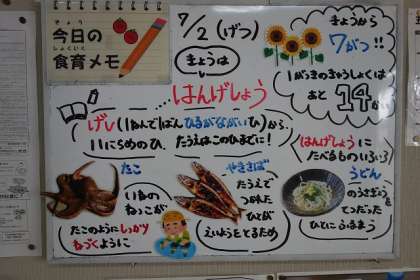 きょう
今日の
しょくいく
食育メモ
7/2 (げつ)
きょうは
きょうから
7がつ!!
1がっきのきゅうしょくは
あと 14か
はんげしょう
げし(1ねんで1ばんひるがながいひ)から、
11にちめのひ、たうえはこのひまでに!
はんげしょうに
たべるものいろいろ
たこ
いねの
ねっこが
たこのようにしっかり
ねづくように
やきさば
たうえで
つかれた
ひとが
えいようをとるため
うどん
のうさぎょうを
てつだった
ひとにふるまう